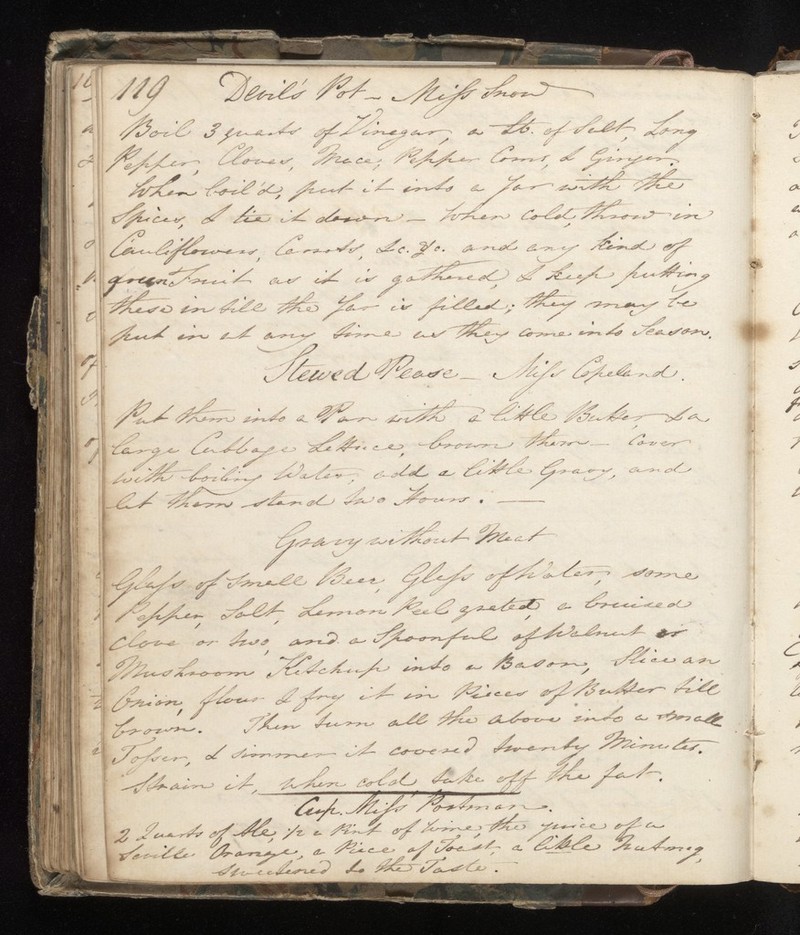 119 Devil's Pot - Miss Snow
Boil 3 quarts of Vinegar, a lb. of Salt, Long
Pepper, Cloves, Mace, Pepper Corns, & Ginger.
When boil'd, put it into a Jar with the
Spices, & tie it down - When cold, throw in
Cauliflowers, Carrots, &c. &c. and any kind of
green Fruit as it is gathered, & keep putting
these in till the Jar is filled; they may be
put in at any time as they come into Season.
Stewed Pease - Miss Copeland.
Put them into a Pan with a little Butter, & a
large Cabbage Lettuce, brown them - Cover
with boiling Water, add a little Gravy, and
let them stand two Hours. -
Gravy without Meat
Glass of Small Beer, Glass of Water, some
Pepper, Salt, Lemon Peel grated, a bruised
Clove or two, and a Spoonful of Walnut or
Mushroom Ketchup into a Bason, Slice an
Onion, flour & fry it in Pieces of Butter till
brown. Then turn all the above into a small
Tosser, & simmer it covered twenty Minutes.
Strain it, when cold take off the fat.
Cup, Miss Postman.
2 Quarts of Ale, 1/2 a Pint of Wine, the juice of a
Seville Orange, a Piece of Toast, a little Nutmeg,
sweetened to the Taste.